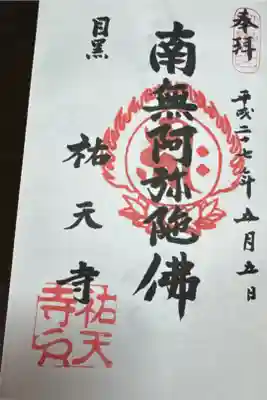 奉拝
平成二十七年五月五日
南無阿弥陀佛
目黒
祐天寺
祐天
寺印